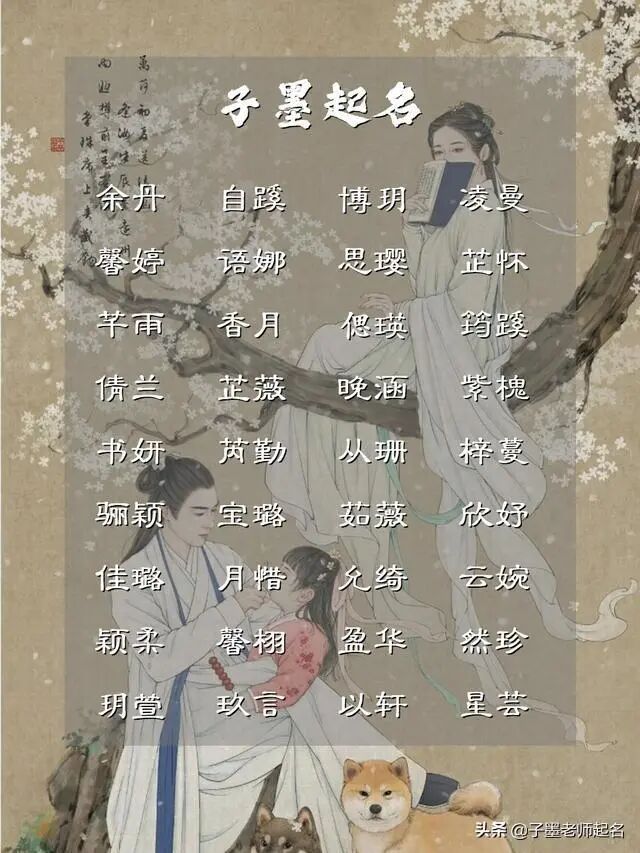 子墨起名
余丹 自蹊 博玥 凌曼
馨婷 语娜 思璎 芷怀
芊雨 香月 偲瑛 筠蹊
倩兰 芷薇 晚涵 紫槐
书妍 芮勤 从珊 梓蔓
骊颖 宝璐 茹薇 欣妤
佳璐 月惜 允绮 云婉
颖柔 馨栩 盈华 然珍
玥萱 玖言 以轩 星芸
头条 @子墨老师起名